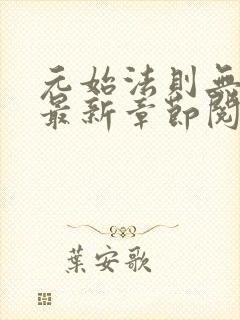 元始法則無
最新章節閱
葉安歌